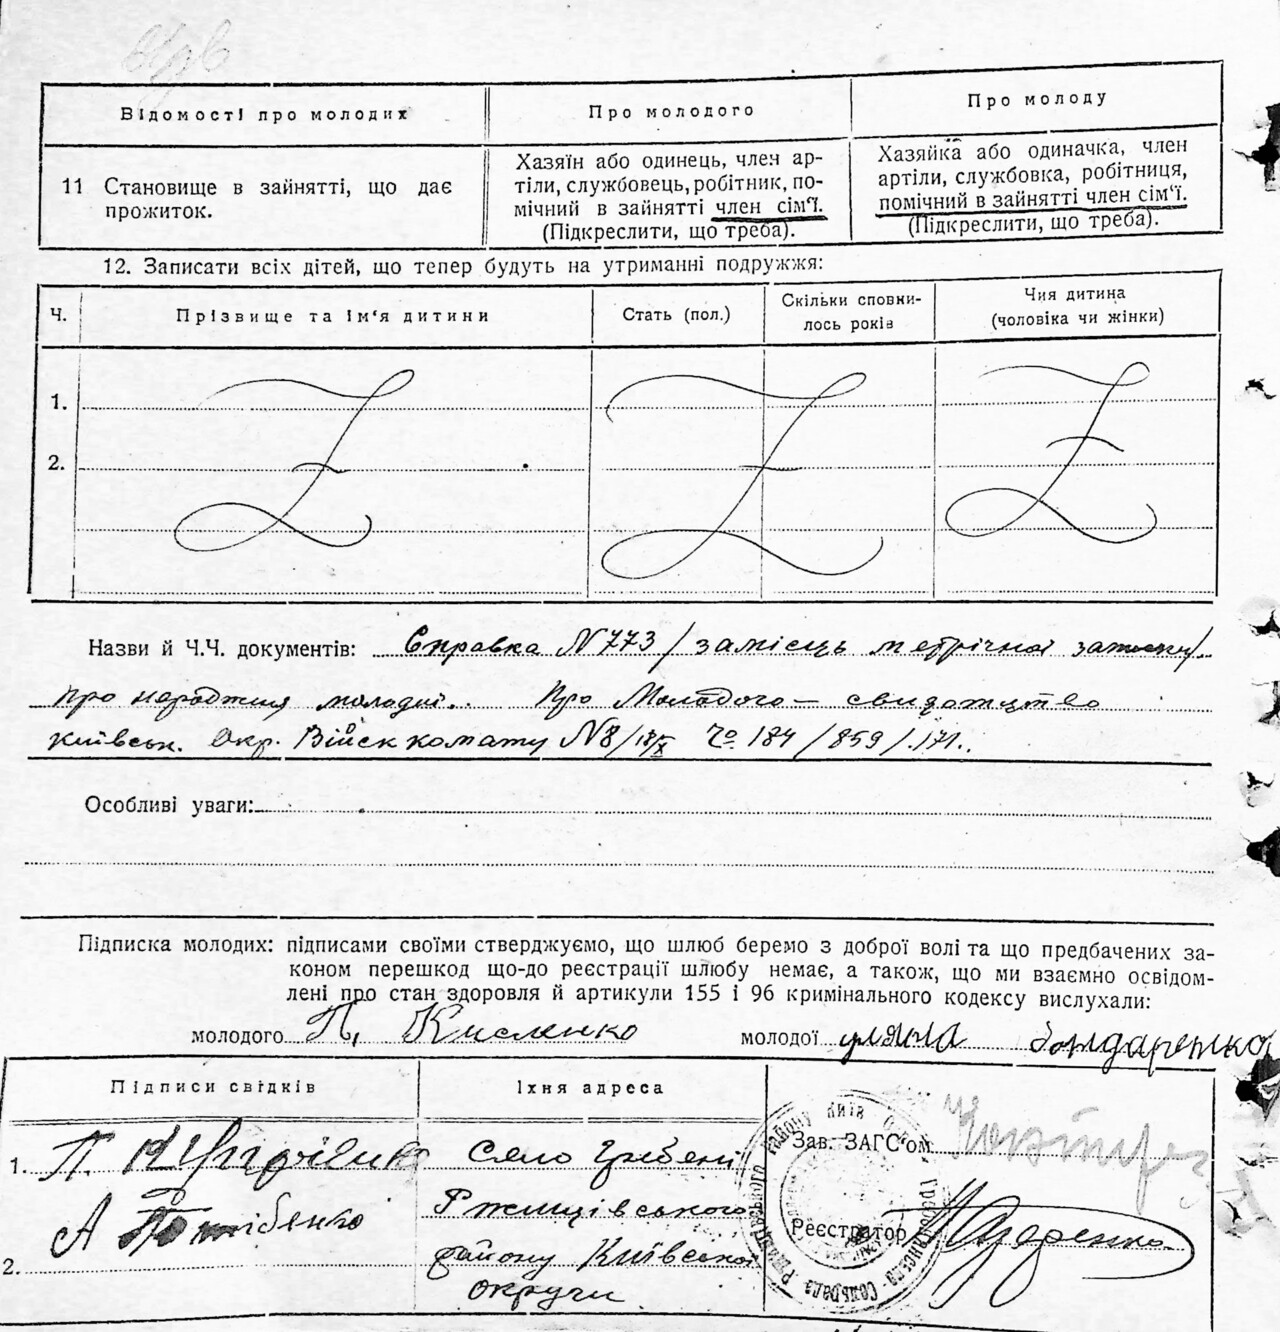 Відомості про молодих
Про молодого
Про молоду
11 Становище в зайнятті, що дає
прожиток.
Хазяїн або одинець, член ар-
тіли, службовець, робітник, по-
мічний в зайнятті член сім‘ї.
(Підкреслити, що треба).
Хазяйка або одиначка, член
артіли, службовка, робітниця,
помічний в зайнятті член сім‘ї.
(Підкреслити, що треба).
12. Записати всіх дітей, що тепер будуть на утриманні подружжя:
Ч.
Прізвище та ім‘я дитини
Стать (пол.)
Скільки сповни-
лось років
Чия дитина
(чоловіка чи жінки)
1.
2.
Назви й Ч.Ч. документів: Справка N 773 / замісць метрічної
про народжиня молодої. Про Молодого — свидоцтво
Київськ. Окр. Військкомату N8 / 184 / 859 / 171.
Особливі уваги:
Підписка молодих: підписами своїми стверджуємо, що шлюб беремо з доброї волі та що предбачених за-
коном перешкод що-до реєстрації шлюбу немає, а також, що ми взаємно освідом-
лені про стан здоровля й артикули 155 і 96 кримінального кодексу вислухали:
молодого П. Кисленко молодої уляна бондаренко
Підписи свідків
Їхня адреса
1. П.
Село Гребені
Зав. ЗАГС‘ом
А
Ржищівського
Реєстратор
2.
району Київської
округи